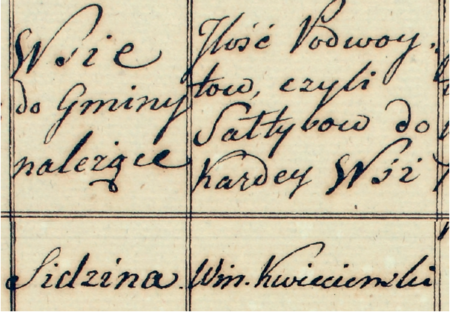 Wsie
do Gminy
należące
Ilość Podwoy.
tow, czyli
Sałtysow do
Kazdey Wsi
Sidzina.
Win. Kwiecinski